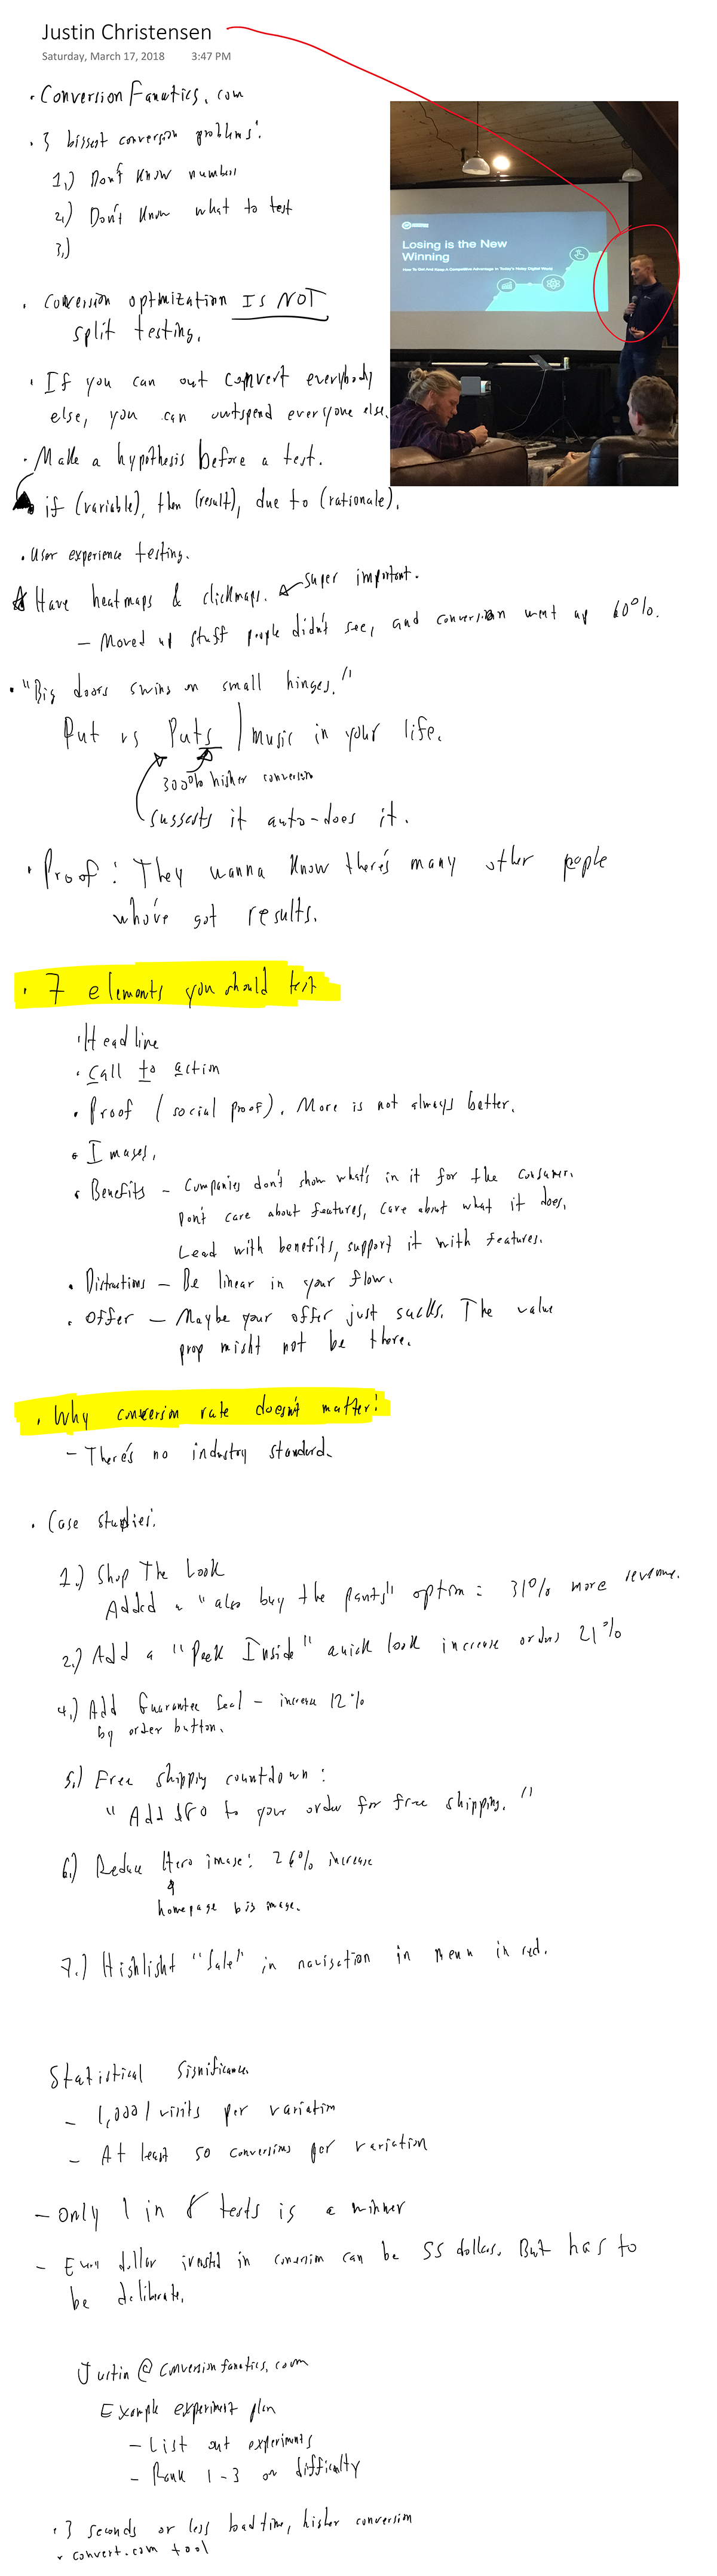 Justin Christensen
Saturday, March 17, 2018 3:47 PM
• ConversionFanatics.com
• 3 biggest conversion problems:
1.) Don't know numbers
2.) Don't know what to test
3.)
Losing is the New
Winning
How To Get And Keep A Competitive Advantage in Today's Noisy Digital World
• Conversion optimization IS NOT
split testing.
• If you can out convert everybody
else, you can outspend everyone else.
• Make a hypothesis before a test.
if (variable), then (result), due to (rationale).
• User experience testing.
Have heatmaps & clickmaps. Super important.
- Moved up stuff people didn't see, and conversion went up 60%.
• "Big doors swing on small hinges."
Put vs Puts / music in your life.
300% higher conversion
suggests it auto-does it.
• Proof: They wanna know there's many other people
who've got results.
• 7 elements you should test
• Headline
• Call to action
• Proof (social proof). More is not always better.
• Images.
• Benefits - Companies don't show what's in it for the consumer.
Don't care about features, care about what it does.
Lead with benefits, support it with features.
• Distractions - Be linear in your flow.
• Offer - Maybe your offer just sucks. The value
prop might not be there.
• Why conversion rate doesn't matter:
- There's no industry standard.
• Case studies:
1.) Shop The Look
Added a "also buy the pants" option = 31% more revenue.
2.) Add a "Peek Inside" quick look increase orders 21%
4.) Add Guarantee Seal - increase 12%
by order button.
5.) Free shipping countdown:
"Add to your order for free shipping."
6.) Reduce Hero image: 26% increase
homepage big image.
7.) Highlight "Sale" in navigation in menu in red.
Statistical Significance
- 1,000/visits per variation
- At least 50 conversions per variation
- Only 1 in 8 tests is a winner
- Every dollar invested in conversion can be 55 dollars. But has to
be deliberate.
Justin@conversionfanatics.com
Example experiment plan
- List out experiments
- Rank 1-3 on difficulty
• 3 seconds or less load time, higher conversion
• convert.com tool